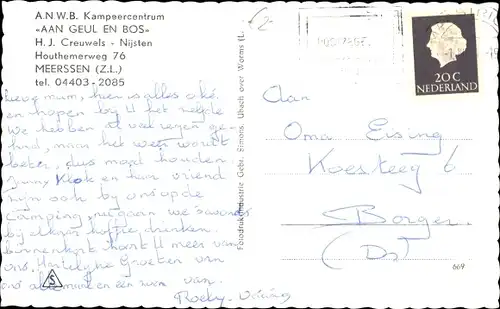 A.N.W.B. Kampeercentrum
«AAN GEUL EN BOS»
H. J. Creuwels - Nijsten
Houthemerweg 76
MEERSSEN (Z.L.)
tel. 04403-2085
lieve mum, hier is alles oké
en hopen bij U het zelfde
We hebben al veel regen ge-
had, maar het weer wordt
beter, dus moed houden.
Jinny Klok en hun vriend
zijn ook bij ons op de
Camping, nu gaan we 's avonds
bij elkaar koffie drinken.
binnenkort hoort U meer van
ons. Hartelijke Groeten van
ons allemaal en een zoen van.
Roeby -
S
Fotodrukindustrie Gebr. Simons, Ubach over Worms (L.
20 C
NEDERLAND
Aan
Oma Eising
Koesteeg 6
Borger
(Dr)
669